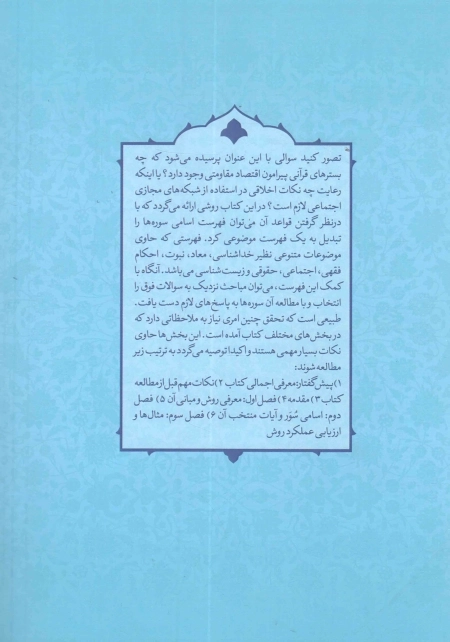 تصور کنید سوالی با این عنوان پرسیده می‌شود که چه
بسترهای قرآنی پیرامون اقتصاد مقاومتی وجود دارد؟ یا اینکه
رعایت چه نکات اخلاقی در استفاده از شبکه‌های مجازی
اجتماعی لازم است؟ در این کتاب روشی ارائه می‌گردد که با
درنظر گرفتن قواعد آن می‌توان فهرست اسامی سوره‌ها را
تبدیل به یک فهرست موضوعی کرد. فهرستی که حاوی
موضوعات متنوعی نظیر خداشناسی، معاد، نبوت، احکام
فقهی، اجتماعی، حقوقی و زیست‌شناسی می‌باشد. آنگاه با
کمک این فهرست، می‌توان مباحث نزدیک به سوالات فوق را
انتخاب و با مطالعه آن سوره‌ها به پاسخ‌های لازم دست یافت.
طبیعی است که تحقق چنین امری نیاز به ملاحظاتی دارد که
در بخش‌های مختلف کتاب آمده است. این بخش‌ها حاوی
نکات بسیار مهمی هستند و اکیدا توصیه می‌گردد به ترتیب زیر
مطالعه شوند:
۱) پیش‌گفتار: معرفی اجمالی کتاب ۲) نکات مهم قبل از مطالعه
کتاب ۳) مقدمه ۴) فصل اول: معرفی روش و مبانی آن ۵) فصل
دوم: اسامی سُوَر و آیات منتخب آن ۶) فصل سوم: مثال‌ها و
ارزیابی عملکرد روش